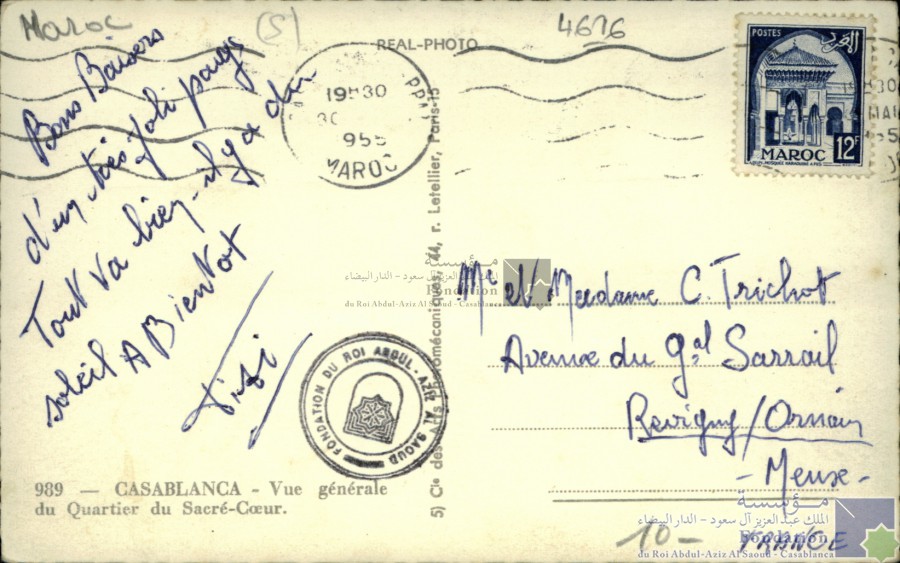 Maroc
(5)
4676
REAL-PHOTO
Bons Baisers
d'un très joli pays
Tout va bien - il y a du
soleil A Bientot
19H30
30
955
MAROC
POSTES
المغرب
MAROC
12F
Mr et Madame C. Trichot
Avenue du Gal Sarrail
Revigny/Ornain
- Meuse -
FRANCE
10-
989 — CASABLANCA - Vue générale
du Quartier du Sacré-Cœur.
5) Cie des Arts Photomécaniques, 44, r. Letellier, Paris-15
FONDATION DU ROI ABDUL-AZIZ AL SAOUD
مؤسسة
الملك عبد العزيز آل سعود - الدار البيضاء
Fondation
du Roi Abdul-Aziz Al Saoud - Casablanca
مؤسسة
الملك عبد العزيز آل سعود - الدار البيضاء
Fondation
du Roi Abdul-Aziz Al Saoud - Casablanca